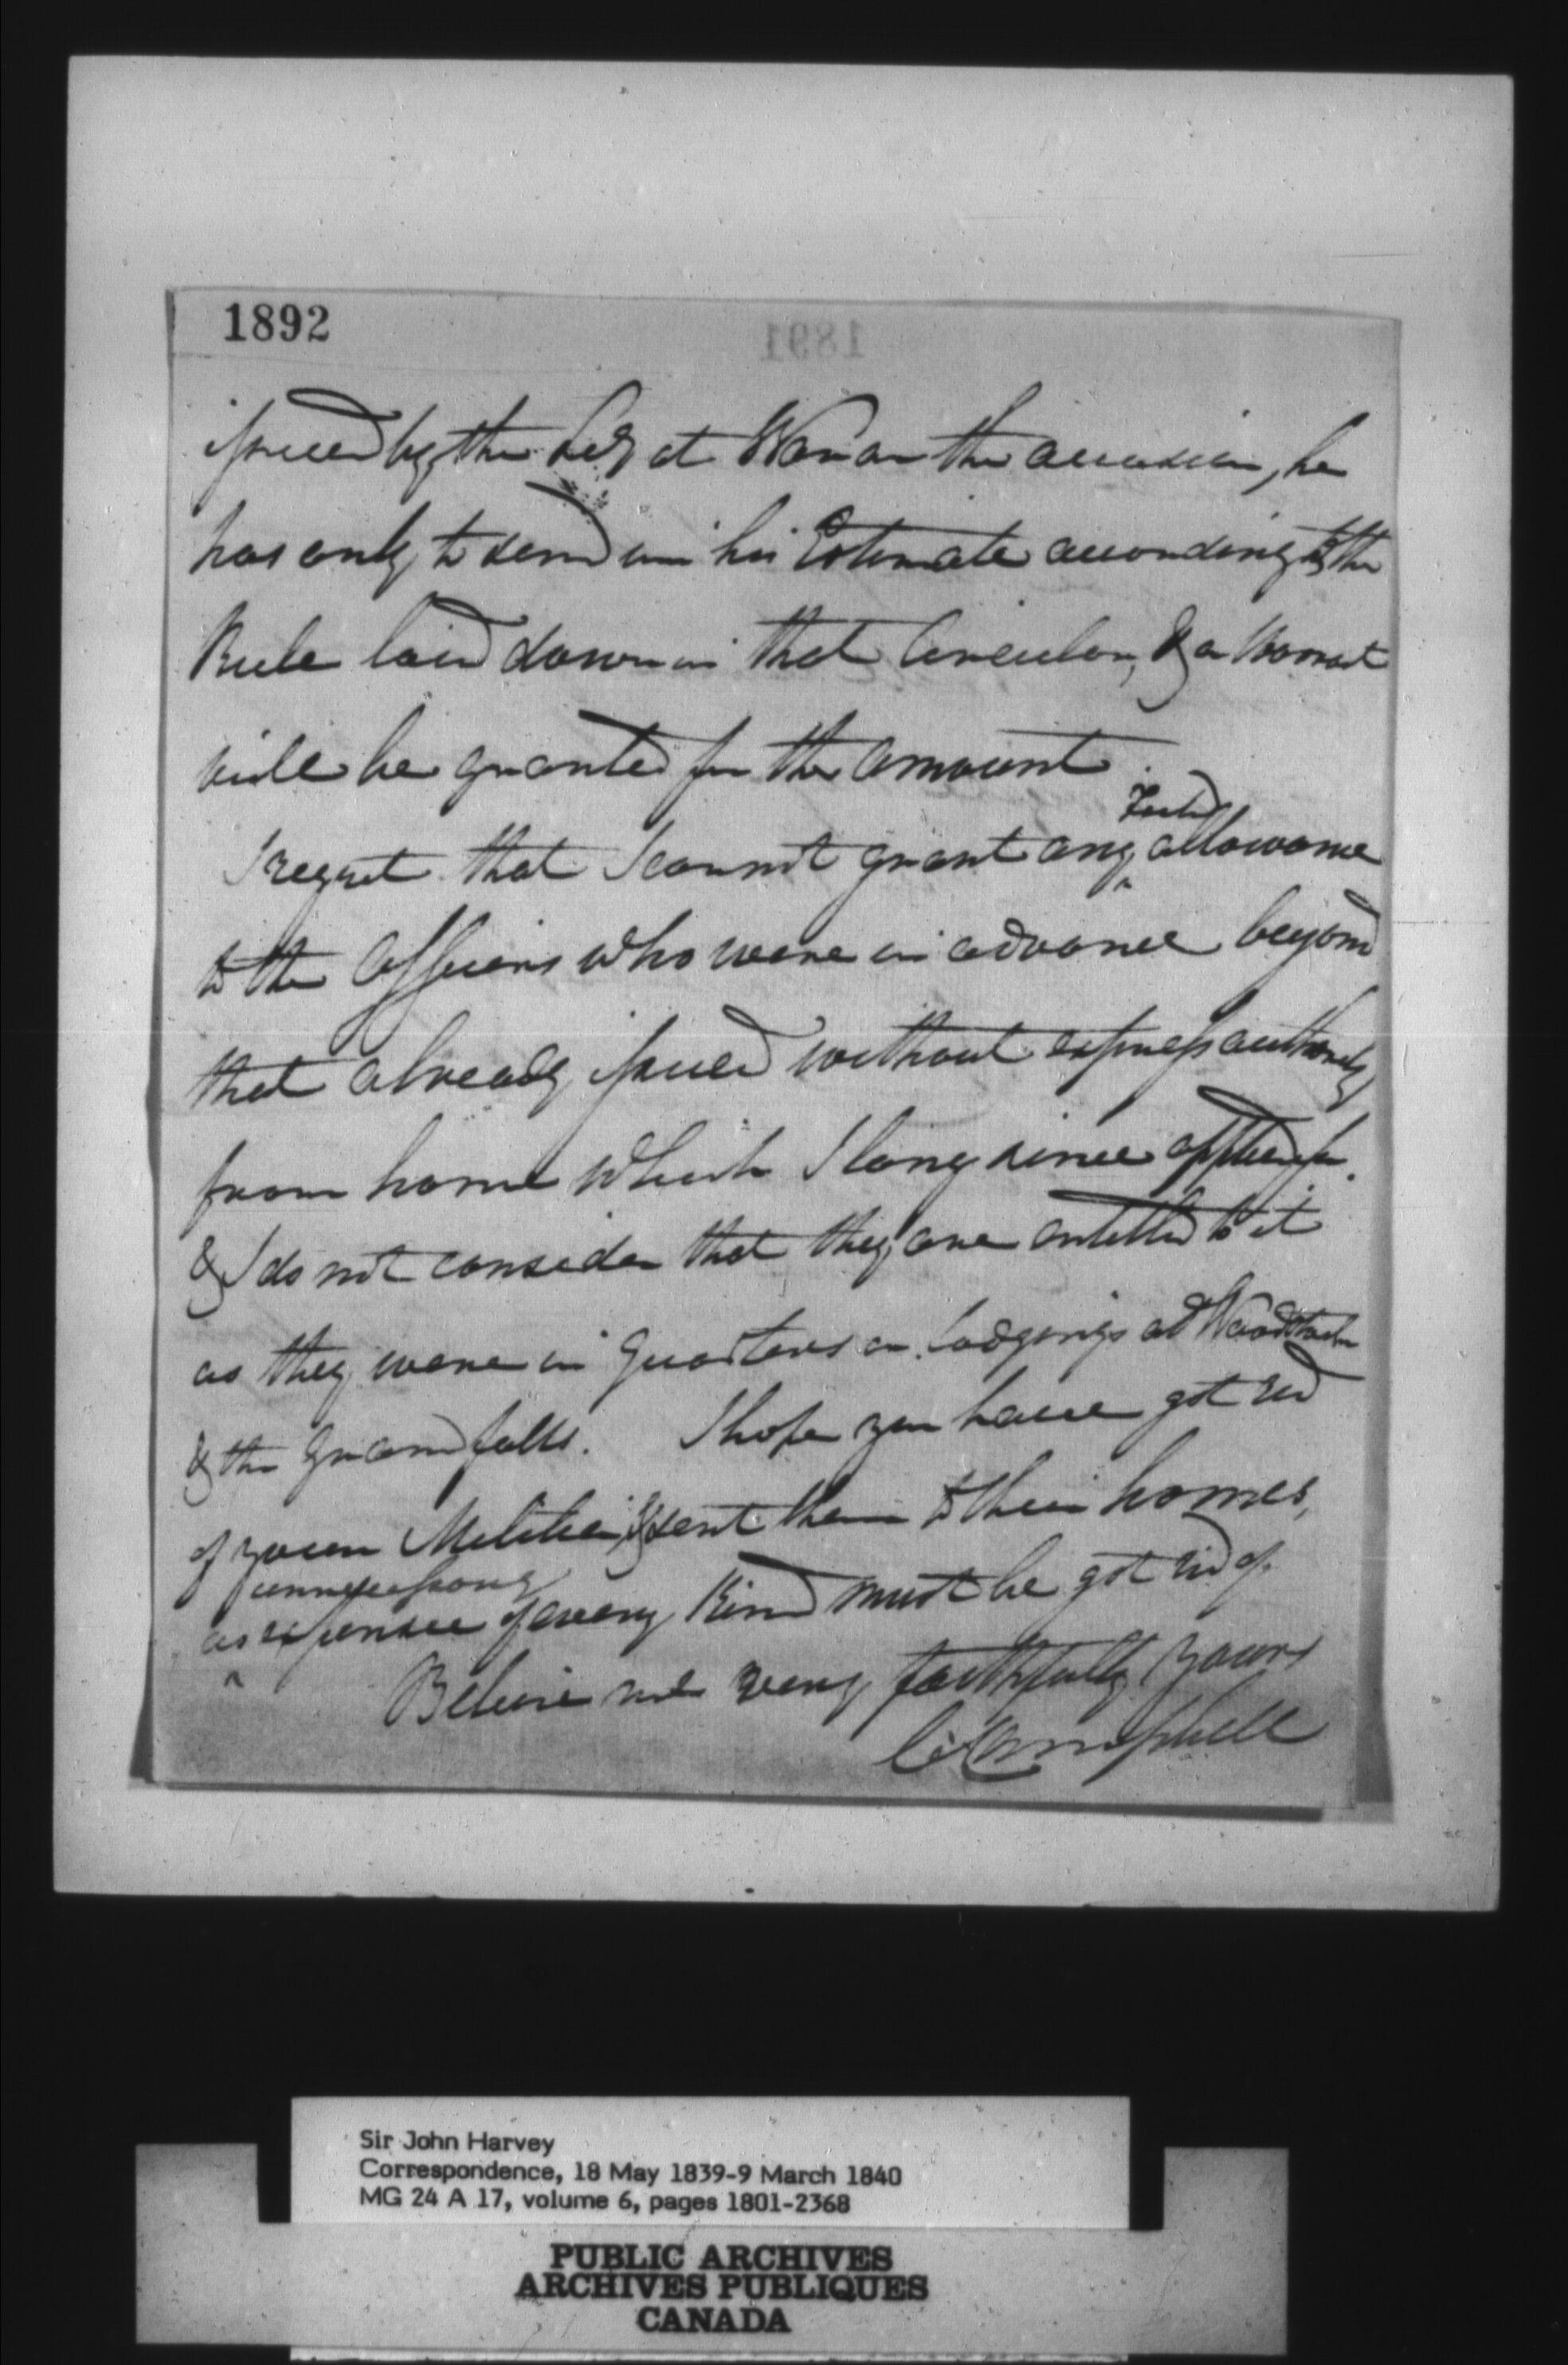 1892
issued by the Secy at War on the occasion, he
has only to send in his Estimate according to the
Rule laid down in that Circular, & a Warrant
will be granted for the amount.
Field
I regret that I cannot grant any allowance
to the Officers who were in advance beyond
that already issued without express authority
from home which I long since applied for.
& I do not consider that they are entitled to it
as they were in Quarters or Lodgings at Woodstock
& the Grand falls. I hope you have got rid
of your Militia, & sent them to their homes,
unnecessary
as expense of every Kind must be got rid of.
Believe me very faithfully yours
C Campbell
Sir John Harvey
Correspondence, 18 May 1839-9 March 1840
MG 24 A 17, volume 6, pages 1801-2368
PUBLIC ARCHIVES
ARCHIVES PUBLIQUES
CANADA